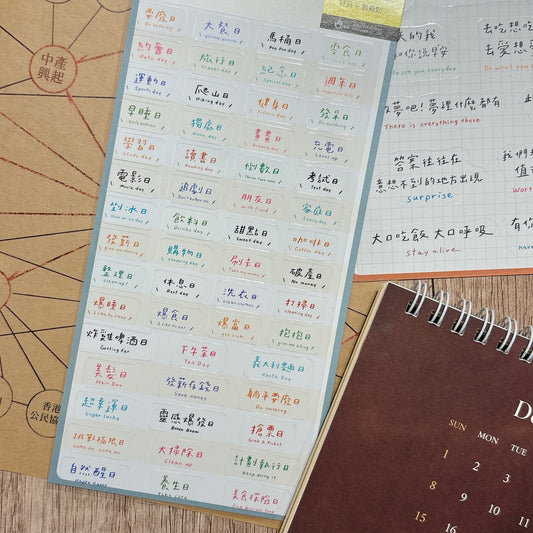 耍廢日
Do nothing
大餐日
yummy yummy
馬桶日
Poo Poo day
約會日
Date day
旅行日
Travel day
紀念日
Special day
週年日
運動日
Sports day
爬山日
Hiking day
健身日
Fitness day
發呆日
Do nothing
早睡日
獨處日
畫畫日
Drawing day
充電日
Level up
學習日
Study day
讀書日
Reading day
倒數日
考試日
Test day
電影日
Movie day
追劇日
朋友日
with friend
家庭日
Family day
剉冰日
飲料日
Drinks day
甜點日
Sweet day
咖啡日
Coffee day
發薪日
give me money
購物日
Shopping day
刷卡日
Take my money
破產日
No money
整理日
Clean up!
休息日
Rest day
洗衣日
Clean clothes
打掃日
cleaning day
爆睡日
I like to sleep
爆食日
I like to eat
爆富日
抱抱日
give me a hug
炸雞啤酒日
Getting fat
下午茶日
Tea Day
義大利麵日
Pasta Day
美髮日
Hair Day
發薪存錢日
Save money
躺平耍廢日
Do nothing
超幸運日
Super lucky
靈感爆發日
Boom Boom
搶票日
Grab a ticket
挑戰極限日
come on, come on
大掃除日
Clean up
計劃執行日
keep doing it
自然醒日
養生日
Take care
美食探店日
中產
興起
香港
公民協
來的我
和你說早安
to see you everyday
去吃想吃
去愛想愛
Do what you
夢吧！夢裡什麼都有
There is everything there
答案往往在
意想不到的地方出現
surprise
我們
值
wor
大口吃飯 大口呼吸
stay alive
有你
SUN MON TUE
1 2 3
8 9 10
15 16